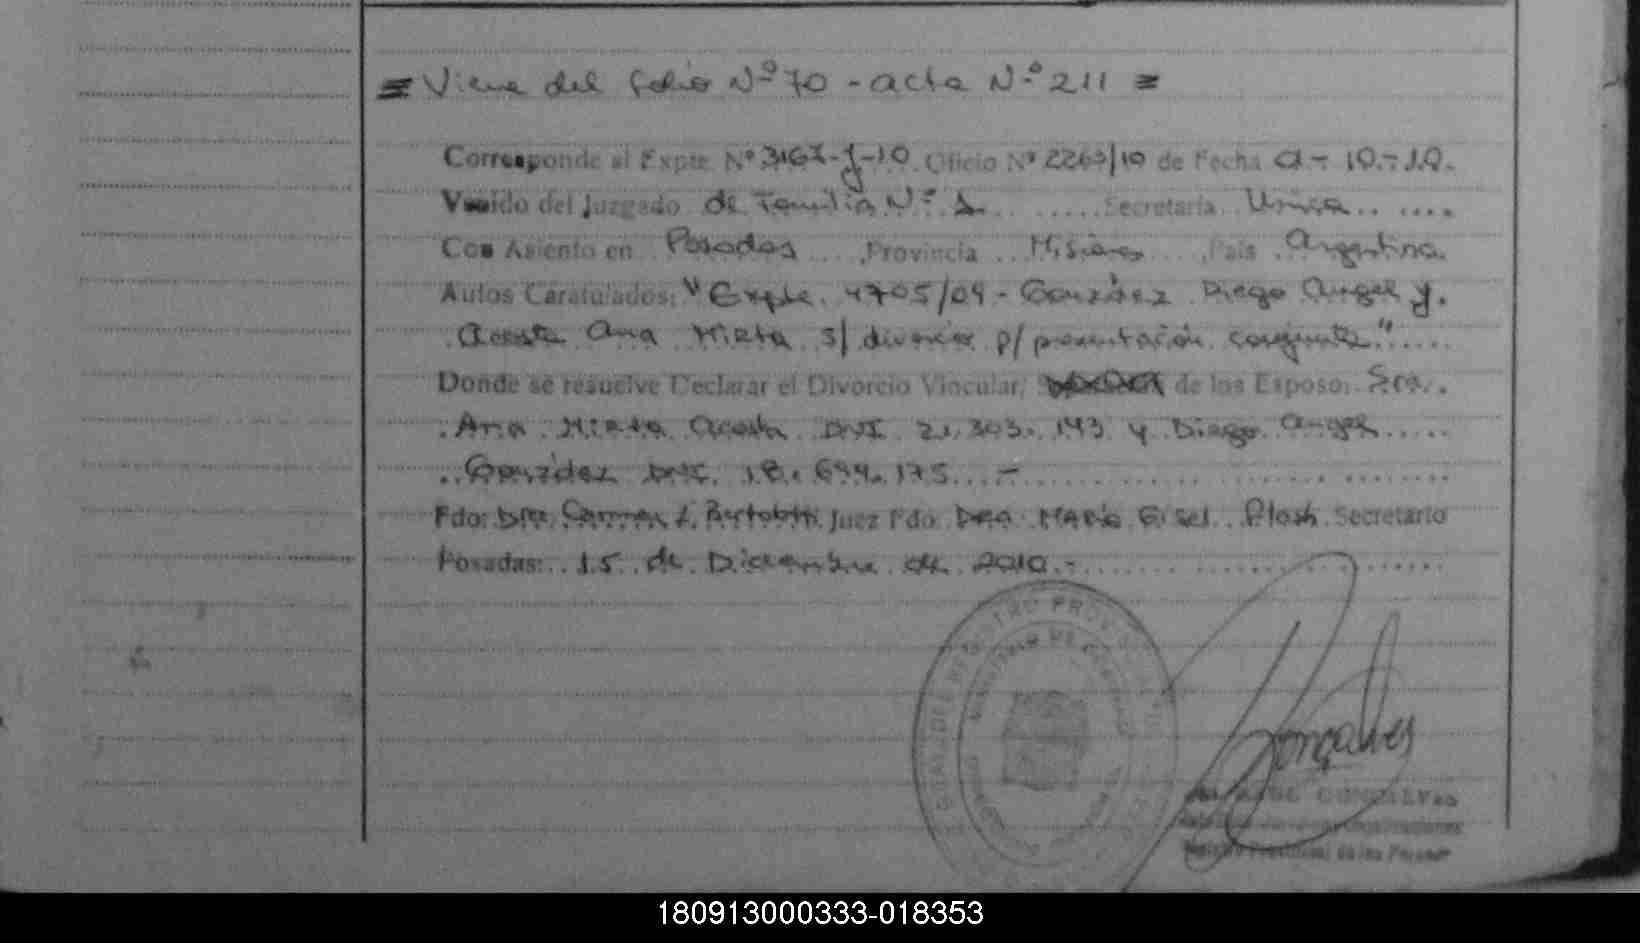 = Viene del folio Nº 70 - acta Nº 211 =
Corresponde al Expte. Nº 3167-J-10. Oficio Nº 2263/10 de Fecha 01-10-10.
Venido del Juzgado de Familia Nº 1 Secretaria Unica
Con Asiento en Posadas Provincia Misiones País Argentina.
Autos Caratulados: "Expte. 4705/04 - González Diego Angel y
Acosta Ana Mirta s/ divorcio p/ presentación conjunta"
Donde se resuelve Declarar el Divorcio Vincular, de los Esposo: Sra.
Ana Mirta Acosta DNI 21.303.143 y Diego Angel
González DNI. 18.694.175. -
Fdo: Dra. Carmen Juez Fdo. Dra María Gisel Secretario
Posadas: 15 de Diciembre de 2010.-
REGISTRO PROV
Gonçalves
GONCALVES